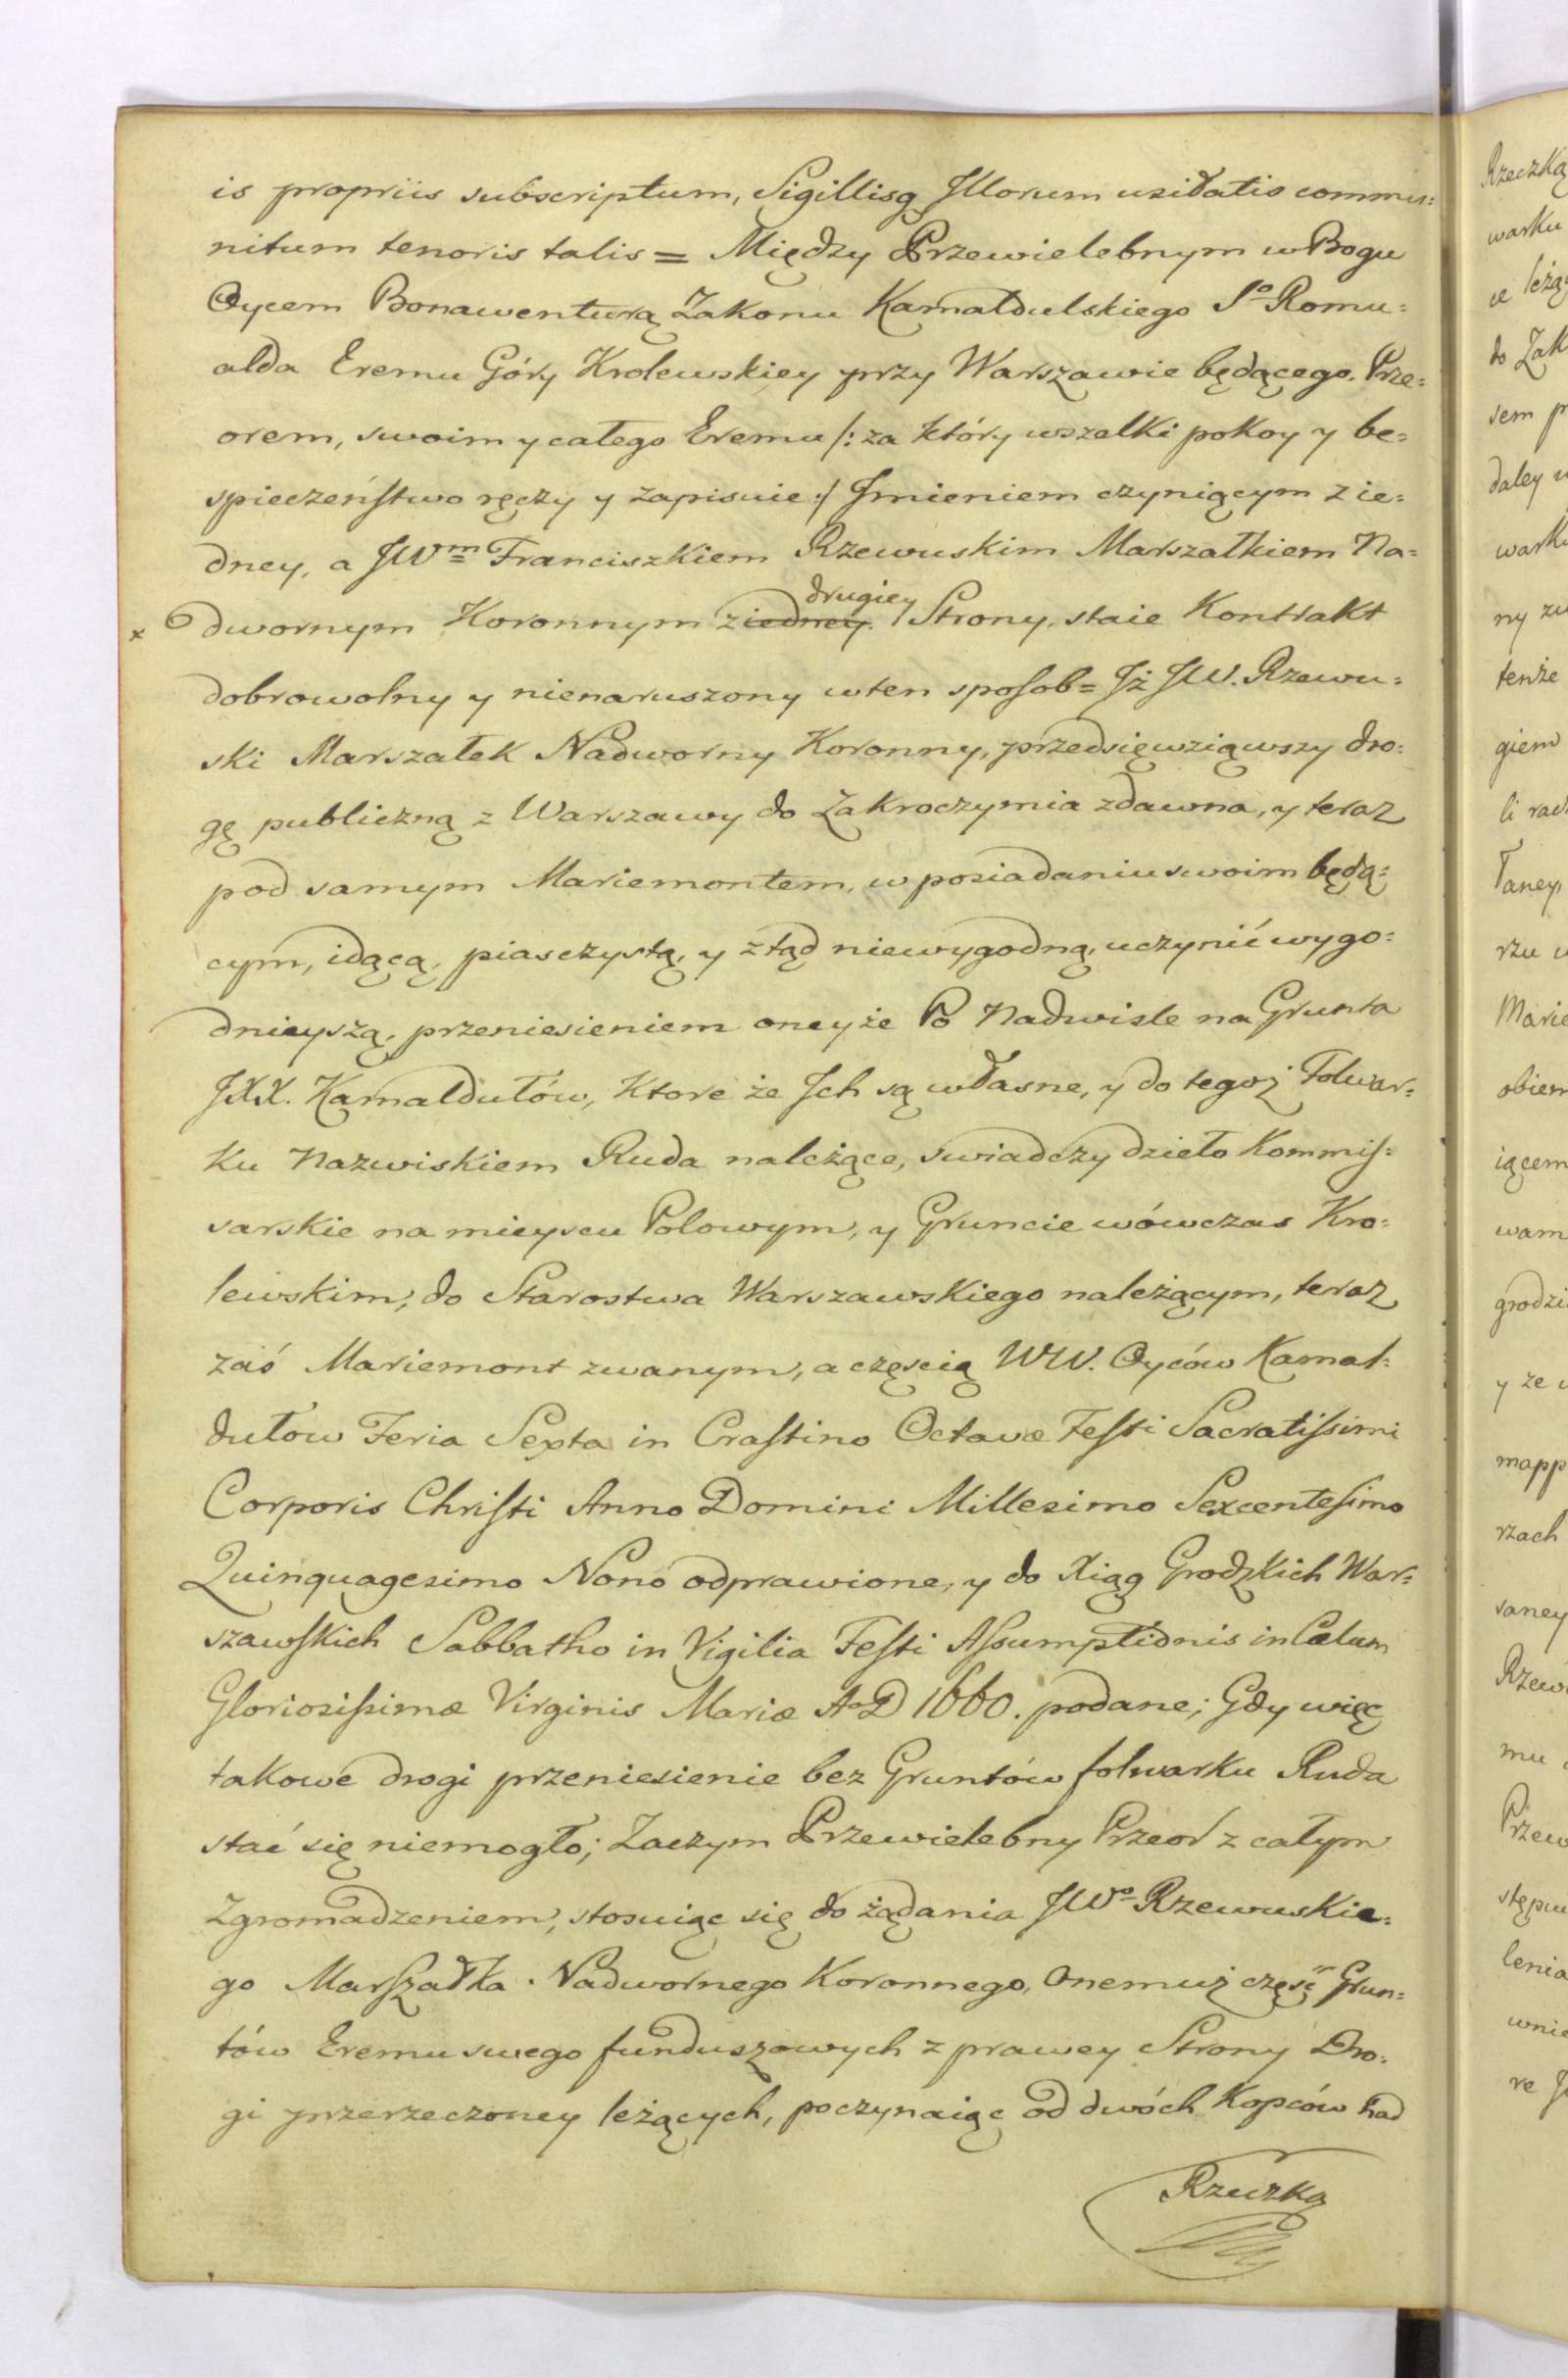 is propriis subscriptum, Sigillisq Illorum usitatis commu=
nitum tenoris talis = Między Przewielebnym w Bogu
Oycem Bonawenturą Zakonu Kamaldulskiego So Romu=
alda Eremu Góry Krolewskiey przy Warszawie będącego. Prze=
orem, swoim y całego Eremu /: za który wszelki pokoy y be=
spieczeństwo ręczy y zapisuie :/ Imieniem czyniącym z ie=
dney, a JWm Franciszkiem Rzewuskim Marszałkiem Na=
drugiey
x dwornym Koronnym z iedney. Strony, staie Kontrakt
dobrowolny y nienaruszony wten sposob = Iż JW. Rzewu=
ski Marszałek Nadworny Koronny, przedsięwziąwszy dro=
gę publiczną z Warszawy do Zakroczymia zdawna, y teraz
pod samym Mariemontem, w posiadaniu swoim będą=
cym, idącą, piasczystą, y ztąd niewygodną, uczynić wygo=
dnieyszą, przeniesieniem oneyże Po Nadwisle na Grunta
JXX. Kamaldułów, Ktore że Ich są własne, y do tegoż Folwar=
ku Nazwiskiem Ruda należące, swiadczy dzieło Kommis=
sarskie na mieyscu Polowym, y Gruncie wówczas Kro=
lewskim, do Starostwa Warszawskiego należącym, teraz
zaś Mariemont zwanym, a częscią WW. Oyców Kamal=
dułow Feria Sexta in Crastino Octavæ Festi Sacratissimi
Corporis Christi Anno Domini Millesimo Sexcentesimo
Quinquagesimo Nono odprawione, y do Xiąg Grodzkich War=
szawskich Sabbatho in Vigilia Festi Assumptionis in Cælum
Gloriosissimæ Virginis Mariæ AoD 1660. podane; Gdy więc
takowe drogi przeniesienie bez Gruntów folwarku Ruda
stać się niemogło; Zaczym Przewielebny Przeor z całym
Zgromadzeniem, stosuiąc się do żądania JWo Rzewuskie=
go Marszałka Nadwornego Koronnego, Onemuż część Grun=
tów Eremu swego funduszowych z prawey Strony Dro=
gi przerzeczoney leżących, poczynaiąc od dwóch Kopców nad
Rzeczką
Rzeczką
warku
do Zak
sem p
daley w
warku
tenże
giem
taney,
Marie
obiem
iącem
wam
mapp
rzach
saney
mu
lenia